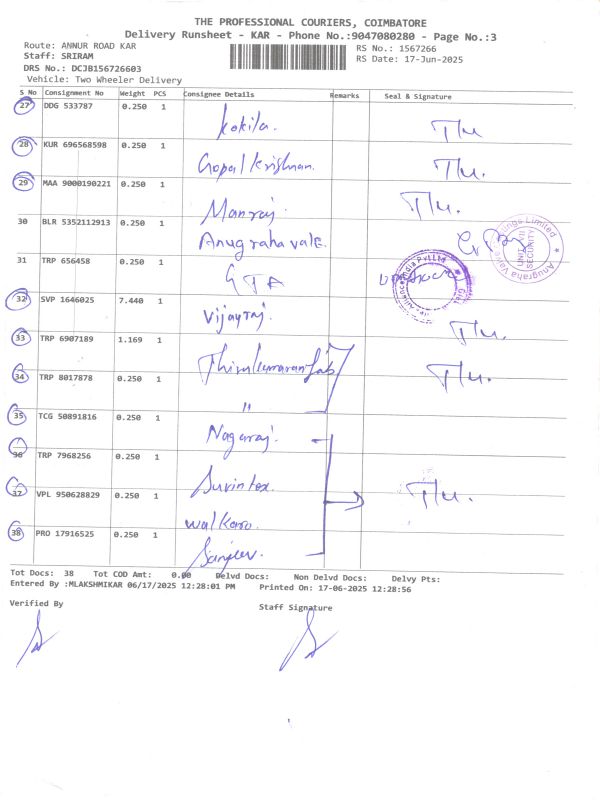 THE PROFESSIONAL COURIERS, COIMBATORE
Delivery Runsheet - KAR - Phone No.:9047080280 - Page No.:3
Route: ANNUR ROAD KAR RS No.: 1567266
Staff: SRIRAM RS Date: 17-Jun-2025
DRS No.: DCJB156726603
Vehicle: Two Wheeler Delivery
S No Consignment No Weight PCS Consignee Details Remarks Seal & Signature
27 DDG 533787 0.250 1 Kokila.
28 KUR 696568598 0.250 1 Gopal Krishnan.
29 MAA 9000190221 0.250 1 Manraj.
30 BLR 5352112913 0.250 1 Anugraha vale. Anugraha Valve Limited UNIT-VII SECURITY
31 TRP 656458 0.250 1 GTA
32 SVP 1646025 7.440 1 Vijayraj.
33 TRP 6907189 1.169 1
34 TRP 8017878 0.250 1 "
35 TCG 50891816 0.250 1 Nagaraj.
36 TRP 7968256 0.250 1 Survintex
37 VPL 950628829 0.250 1 Walkaroo.
38 PRO 17916525 0.250 1 Sanjeev.
Tot Docs: 38 Tot COD Amt: 0.00 Delvd Docs: Non Delvd Docs: Delvy Pts:
Entered By :MLAKSHMIKAR 06/17/2025 12:28:01 PM Printed On: 17-06-2025 12:28:56
Verified By Staff Signature